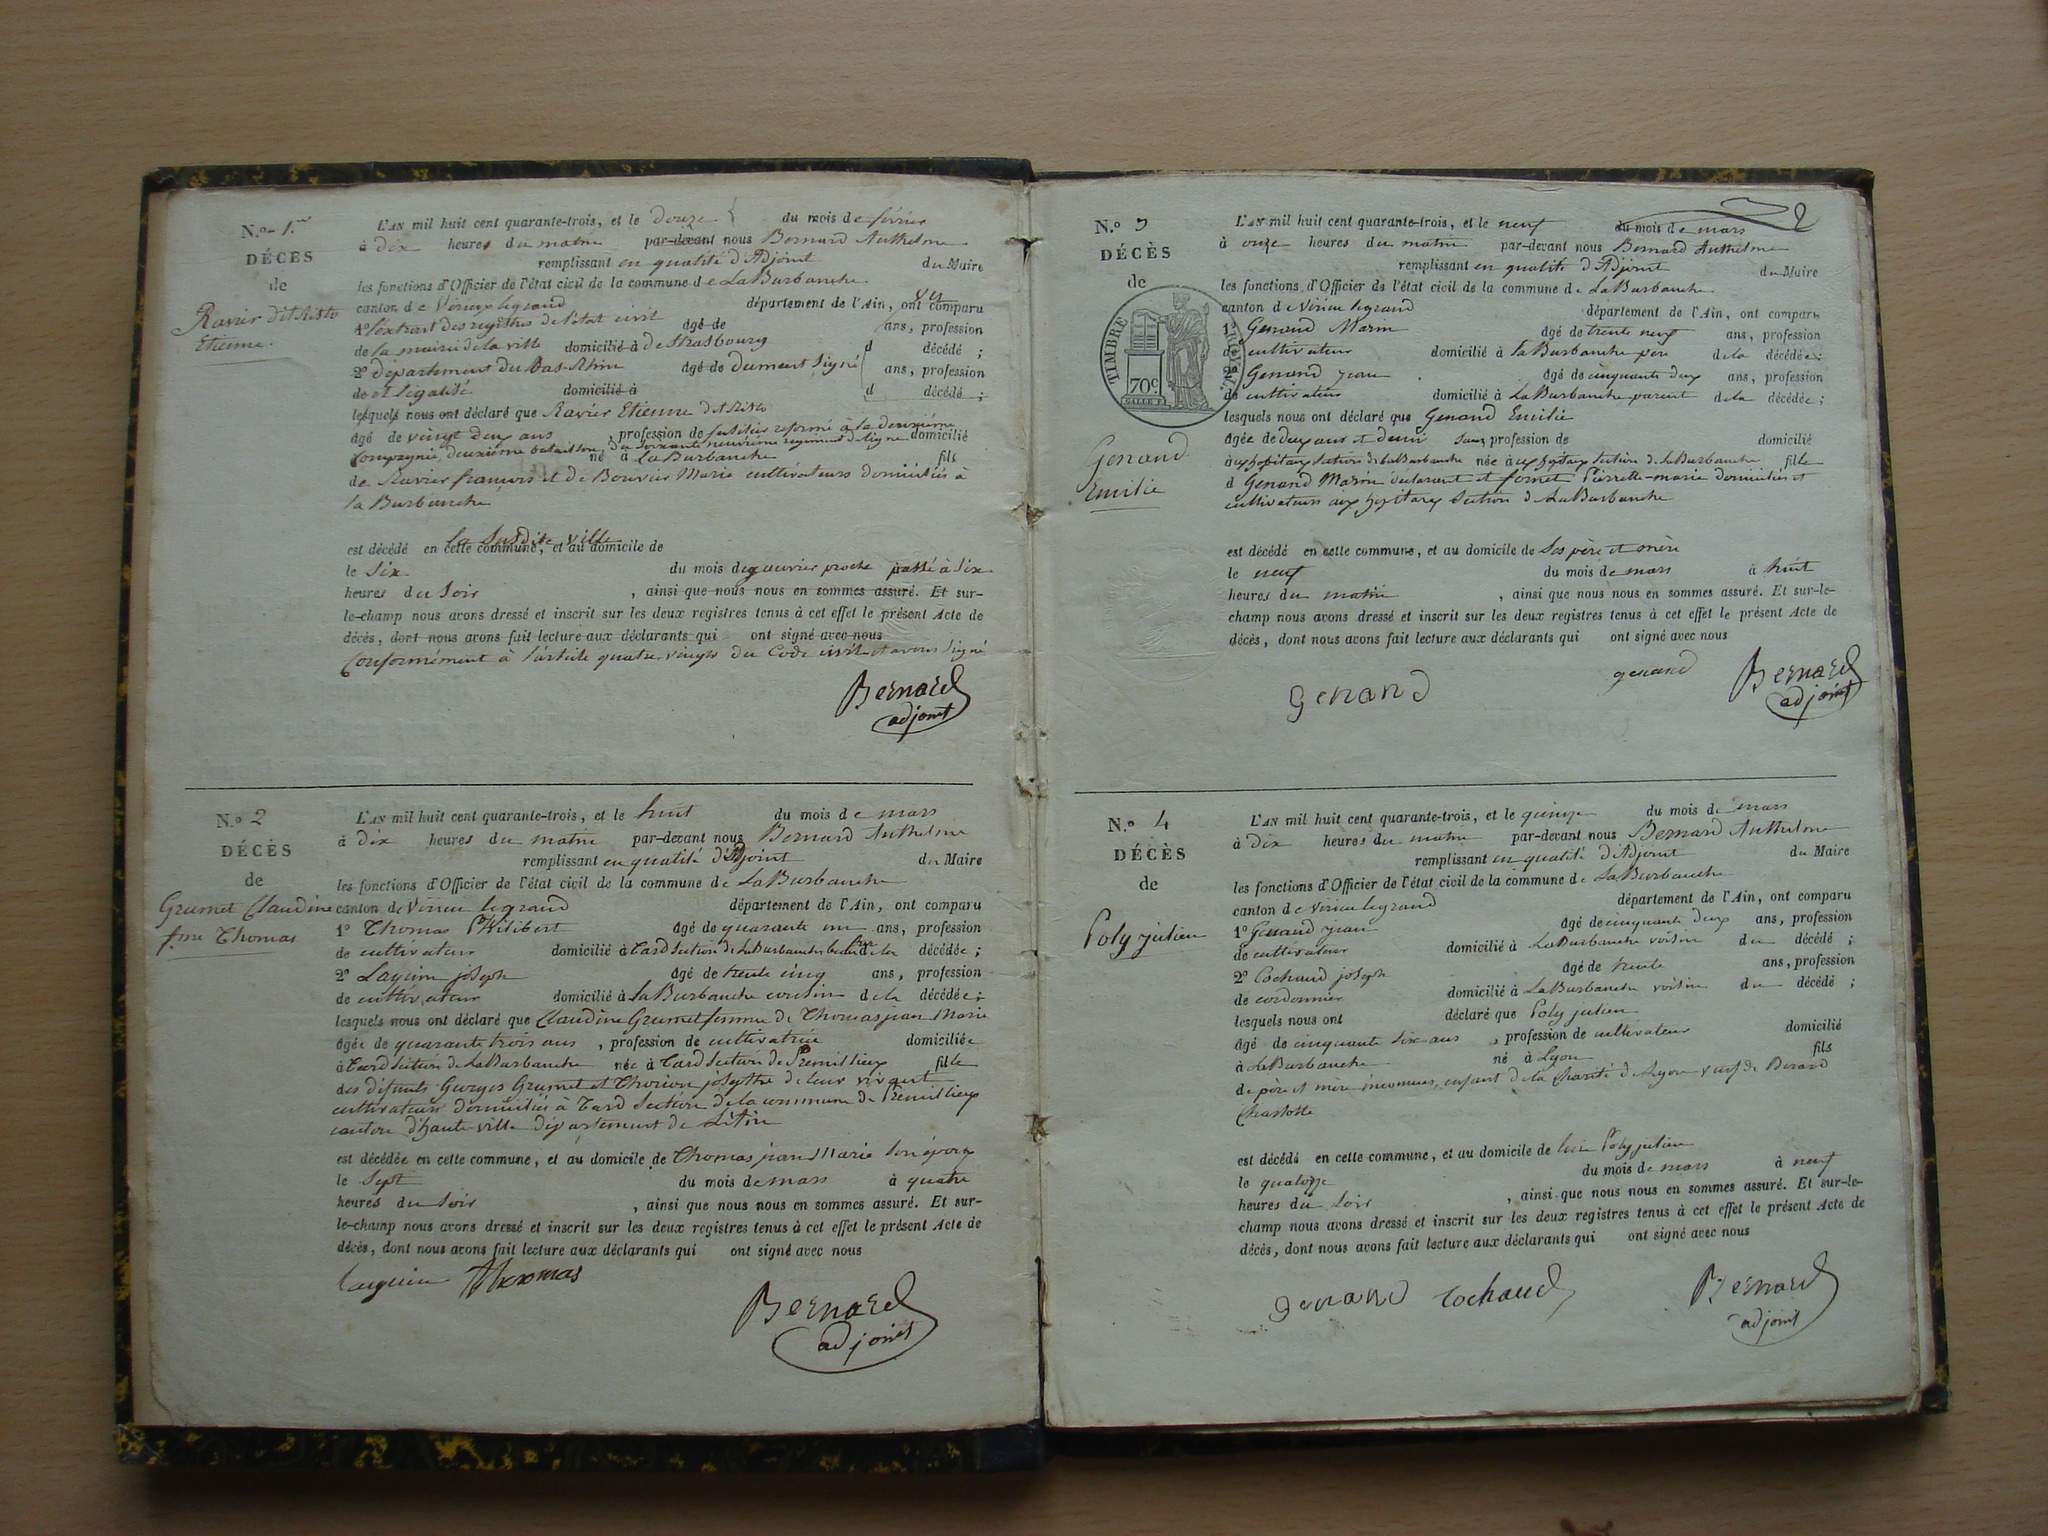 N.o 1.er
DÉCÈS
de
Ravier dit Risto
Etienne.
L'AN mil huit cent quarante-trois, et le douze du mois de février
à dix heures du matin par-devant nous Bernard Anthelme
remplissant en qualité d'Adjoint du Maire
les fonctions d'Officier de l'état civil de la commune de LaBurbanche
canton de Virieu legrand département de l'Ain, ont comparu
1o l'extrait des registres de l'état civil âgé de ans, profession
de la mairie de la ville domicilié à de Strasbourg d décédé ;
2o département du Bas-Rhin âgé de dument signé ans, profession
de et légalisé domicilié à d décédé ;
lesquels nous ont déclaré que Ravier Etienne dit Risto
âgé de vingt deux ans , profession de fusilier reformé à la deuxième
compagnie, deuxième bataillon, du soixante neuvième regiment de ligne domicilié
né à LaBurbanche fils
de Ravier françois et de Bouvier Marie cultivateurs domiciliés à
la Burbanche
est décédé en la susdite ville cette commune, et au domicile de
le six du mois de janvier proche passé à six
heures du soir , ainsi que nous nous en sommes assuré. Et sur-
le-champ nous avons dressé et inscrit sur les deux registres tenus à cet effet le présent Acte de
décès, dont nous avons fait lecture aux déclarants qui ont signé avec nous
Conformément à l'article quatre vingts du Code civil et avons signé
Bernard
adjoint
N.o 2
DÉCÈS
de
Grumet Claudine
fme Thomas
L'AN mil huit cent quarante-trois, et le huit du mois de mars
à dix heures du matin par-devant nous Bernard Anthelme
remplissant en qualité d'Adjoint du Maire
les fonctions d'Officier de l'état civil de la commune de LaBurbanche
canton de Virieu legrand département de l'Ain, ont comparu
1o Thomas Philibert âgé de quarante un ans, profession
de cultivateur domicilié à Tard Section de LaBurbanche de la décédée ;
2o Layuin joseph âgé de trente cinq ans, profession
de cultivateur domicilié à LaBurbanche cousin de la décédée ;
lesquels nous ont déclaré que Claudine Grumet femme de Thomas jean Marie
âgée de quarante trois ans , profession de cultivatrice domiciliée
à Tard Section de LaBurbanche née à Tard Section de Premillieux fille
des défunts Georges Grumet et Thorion josephte de leur vivant
cultivateurs domiciliés à Tard Section de la commune de Premillieux
canton d'haute-ville département de L'Ain
est décédée en cette commune, et au domicile de Thomas jean Marie son époux
le sept du mois de mars à quatre
heures du soir , ainsi que nous nous en sommes assuré. Et sur-
le-champ nous avons dressé et inscrit sur les deux registres tenus à cet effet le présent Acte de
décès, dont nous avons fait lecture aux déclarants qui ont signé avec nous
Thomas
Bernard
adjoint
2
N.o 3
DÉCÈS
de
TIMBRE ROYAL
70c
Genand
Emilie
L'AN mil huit cent quarante-trois, et le neuf du mois de mars
à onze heures du matin par-devant nous Bernard Anthelme
remplissant en qualité d'Adjoint du Maire
les fonctions d'Officier de l'état civil de la commune de LaBurbanche
canton de Virieu legrand département de l'Ain, ont comparu
1o Genand Marin âgé de trente neuf ans, profession
de cultivateur domicilié à LaBurbanche père de la décédée ;
2o Genand jean âgé de cinquante deux ans, profession
de cultivateur domicilié à LaBurbanche parent de la décédée ;
lesquels nous ont déclaré que Genand Emilie
âgée de deux ans et demi sans profession de domicilié
à aux hopitaux section de LaBurbanche née à aux hopitaux section de LaBurbanche fille
d Genand Marin déclarant et fornet Pierrette-marie domiciliés et
cultivateurs aux hopitaux Section de LaBurbanche
est décédé en cette commune, et au domicile de ses père et mère
le neuf du mois de mars à huit
heures du matin , ainsi que nous nous en sommes assuré. Et sur-le-
champ nous avons dressé et inscrit sur les deux registres tenus à cet effet le présent Acte de
décès, dont nous avons fait lecture aux déclarants qui ont signé avec nous
Genand genand Bernard
adjoint
N.o 4
DÉCÈS
de
Poly julien
L'AN mil huit cent quarante-trois, et le quinze du mois de mars
à dix heures du matin par-devant nous Bernard Anthelme
remplissant en qualité d'Adjoint du Maire
les fonctions d'Officier de l'état civil de la commune de LaBurbanche
canton de Virieu legrand département de l'Ain, ont comparu
1o Genand jean âgé de cinquante deux ans, profession
de cultivateur domicilié à LaBurbanche voisin du décédé ;
2o Cochaud joseph âgé de trente ans, profession
de cordonnier domicilié à LaBurbanche voisin du décédé ;
lesquels nous ont déclaré que Poly julien
âgé de cinquante six ans , profession de cultivateur domicilié
à LaBurbanche né à Lyon fils
de père et mère inconnus, enfant de la Charité de Lyon veuf de Berard
Charlotte
est décédé en cette commune, et au domicile de lui Poly julien
le quatorze du mois de mars à neuf
heures du soir , ainsi que nous nous en sommes assuré. Et sur-le-
champ nous avons dressé et inscrit sur les deux registres tenus à cet effet le présent Acte de
décès, dont nous avons fait lecture aux déclarants qui ont signé avec nous
genand Cochaud Bernard
adjoint